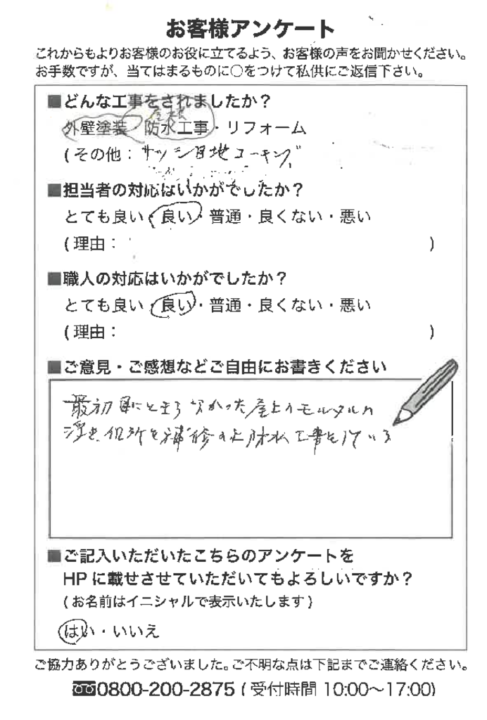 お客様アンケート
これからもよりお客様のお役に立てるよう、お客様の声をお聞かせください。
お手数ですが、当てはまるものに○をつけて私供にご返信下さい。
■どんな工事をされましたか？
屋根
外壁塗装・防水工事・リフォーム
(その他：サッシ目地コーキング
■担当者の対応はいかがでしたか？
とても良い・良い・普通・良くない・悪い
(理由：　)
■職人の対応はいかがでしたか？
とても良い・良い・普通・良くない・悪い
(理由：　)
■ご意見・ご感想などご自由にお書きください
最初目にとまらなかった屋上のモルタルの
浮き個所を補修の上防水工事を
■ご記入いただいたこちらのアンケートを
HPに載せさせていただいてもよろしいですか？
(お名前はイニシャルで表示いたします)
はい・いいえ
ご協力ありがとうございました。ご不明な点は下記までご連絡ください。
0800-200-2875 (受付時間 10:00〜17:00)